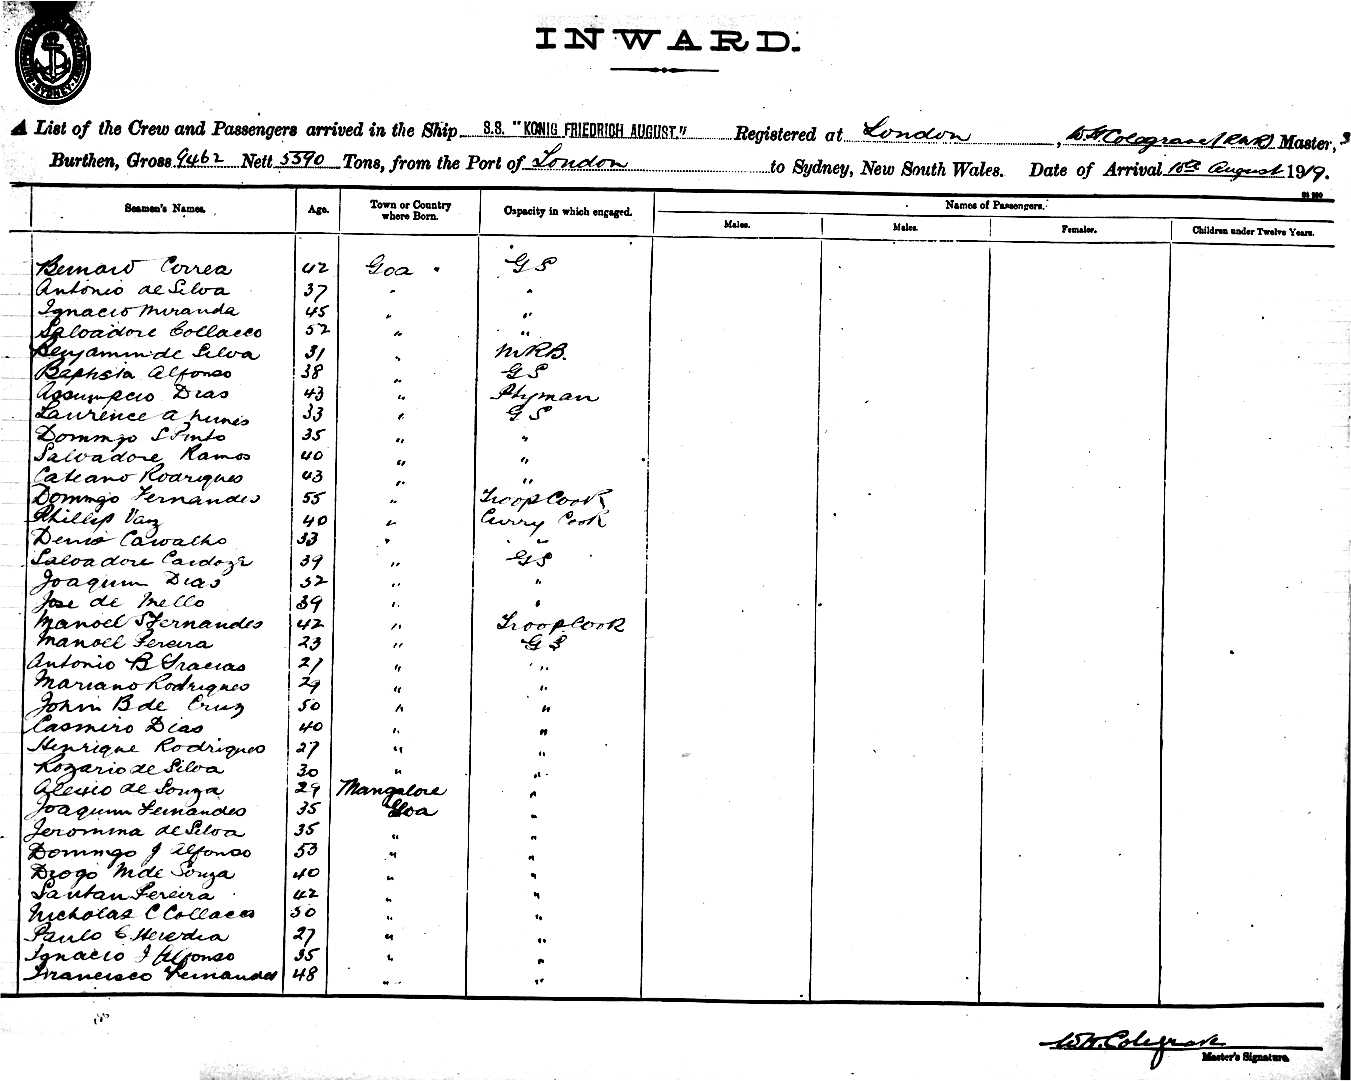 INWARD.
A List of the Crew and Passengers arrived in the Ship S.S. "KONIG FRIEDRICH AUGUST." Registered at London, W H Colegrave (RNR) Master,
Burthen, Gross 9462 Nett 5390 Tons, from the Port of London to Sydney, New South Wales. Date of Arrival August 1919.
Seamen's Names. Age. Town or Country where Born. Capacity in which engaged. Names of Passengers.
Males. Males. Females. Children under Twelve Years.
Bernard Correa 42 Goa G S
Antonio de Silva 37 " "
Ignacio Miranda 45 " "
Salvadore Collacco 52 " "
Benjamin de Silva 31 " MRB.
Baptista Alfonso 38 " G S
Assumpcio Dias 43 " Ptyman
Laurence A Nunes 33 " G S
Domingo S Pinto 35 " "
Salvadore Ramos 40 " "
Cateano Rodrigues 43 " "
Domingo Fernandes 55 " Troop Cook
Phillip Vaz 40 " Curry Cook
Denis Carvalho 33 " "
Salvadore Cardoza 39 " G S
Joaquim Dias 52 " "
Jose de Mello 39 " "
Manoel S Fernandes 42 " Troop Cook
Manoel Pereira 23 " G S
Antonio B Gracias 27 " "
Mariano Rodrigues 29 " "
John B de Cruz 50 " "
Casmiro Dias 40 " "
Henrique Rodrigues 27 " "
Rozario de Silva 30 " "
Alexio de Souza 29 Mangalore "
Joaquim Fernandes 35 Goa "
Jeronima de Silva 35 " "
Domingo J Alfonso 53 " "
Diogo M de Souza 40 " "
Santan Pereira 42 " "
Nicholas C Collaco 50 " "
Paulo C Heredia 27 " "
Ignacio J Alfonso 35 " "
Francisco Fernandes 48 " "
W H. Colegrave
Master's Signature.